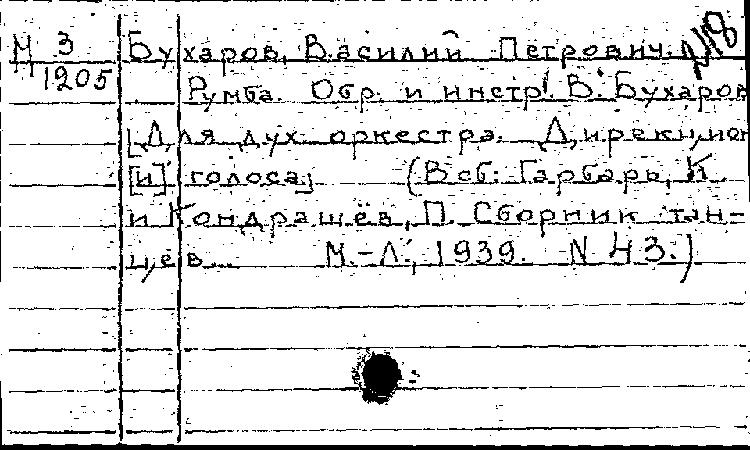 М 3
1205
218
Бухаров, Василий Петрович.
Румба. Обр. и инстр. В. Бухаров
[Для дух. оркестра. Дирекцион
[и] голоса]    (В сб: Гарбарь, К.
и Кондрашёв, П. Сборник тан-
цев...    М.-Л., 1939. N 43.)